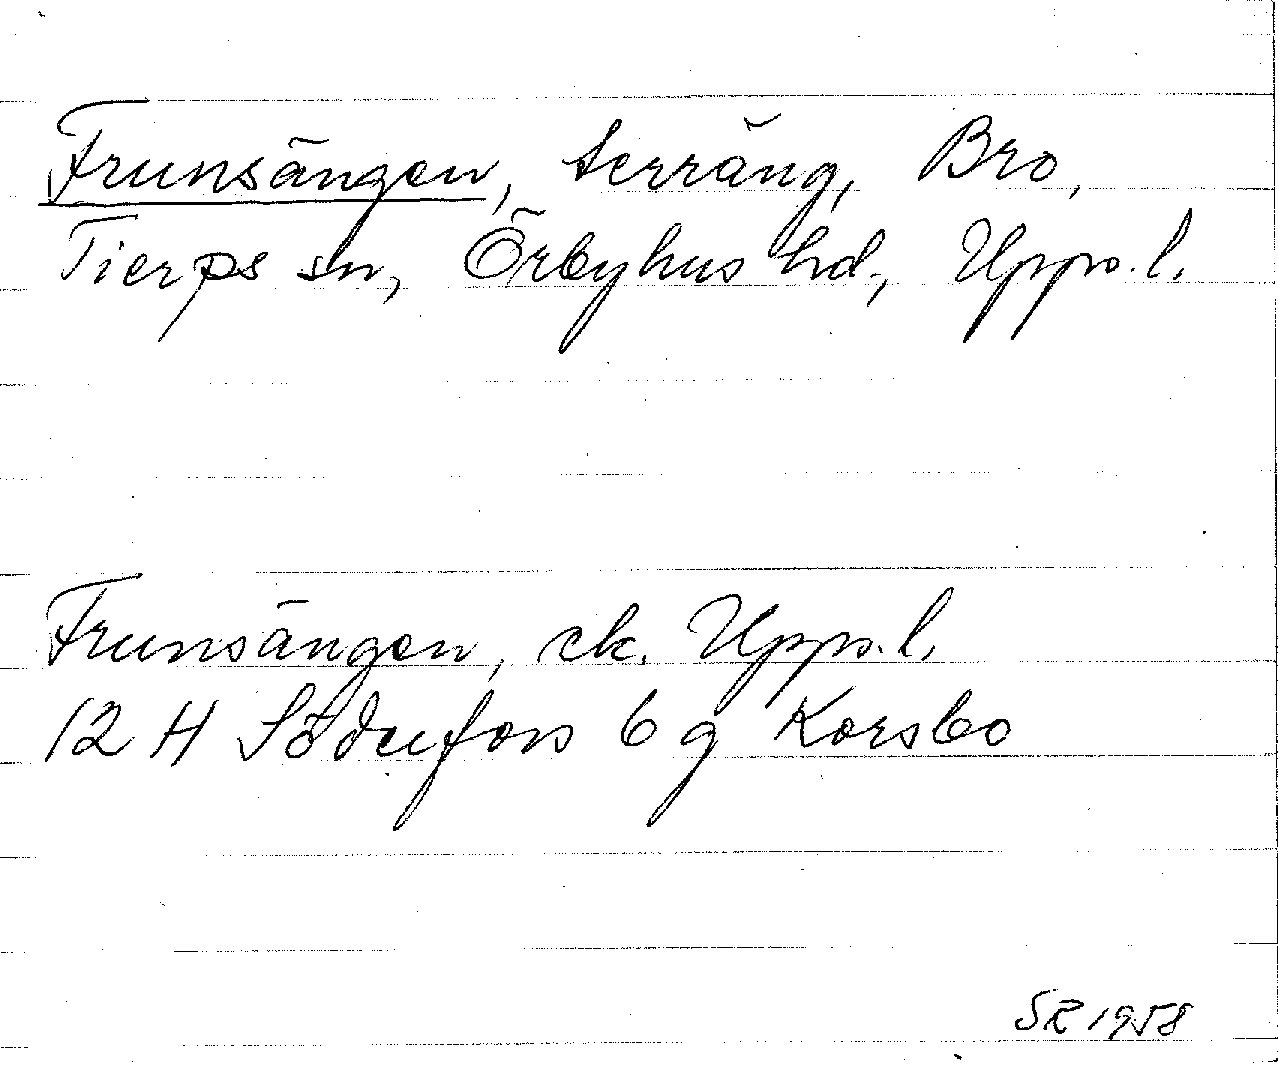 Frunsängen, terräng, Bro,
Tierps sn, Örbyhus hd, Upps.l.
Frunsängen, ek. Upps.l.
12 H Söderfors 6 g Korsbo
SR 1958